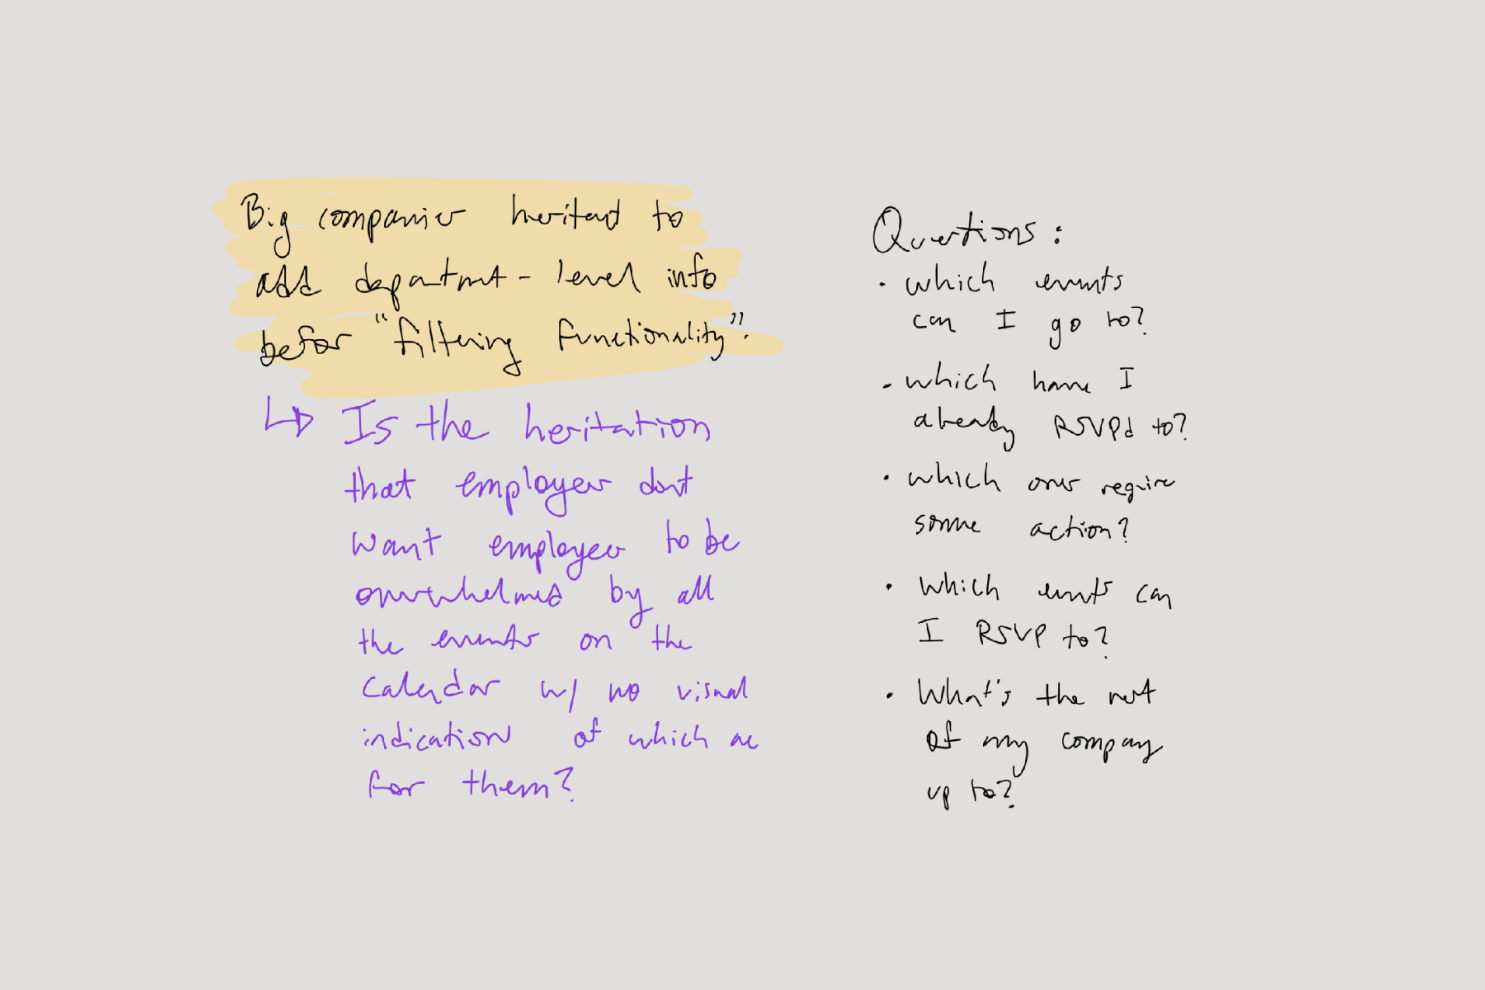 Big companies hesitant to
add department-level info
before "filtering functionality".
↳ Is the hesitation
that employers dont
want employees to be
overwhelmed by all
the events on the
calendar w/ no visual
indication of which are
for them?
Questions:
• which events
can I go to?
• which have I
already RSVPd to?
• which ones require
some action?
• Which events can
I RSVP to?
• What's the rest
of my company
up to?